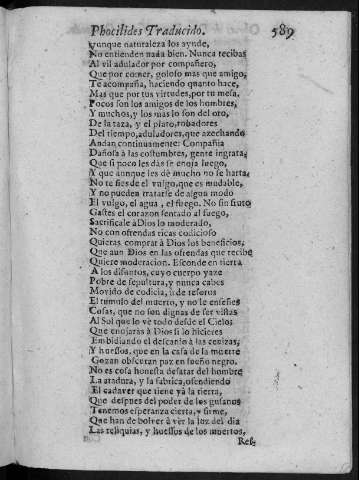 Phocilides Traducido. 589
Aunque naturaleza los ayude,
No entienden nada bien. Nunca recibas
Al vil adulador por compañero,
Que por comer, goloso mas que amigo,
Te acompaña, haciendo quanto hace,
Mas que por tus virtudes, por tu mesa.
Pocos son los amigos de los hombres,
Y muchos, y los mas lo son del oro,
De la taza, y el plato, robadores
Del tiempo, aduladores, que azechando
Andan continuamente: Compañia
Dañosa à las costumbres, gente ingrata,
Que si poco les dàs se enoja luego,
Y que aunque les dè mucho no se harta.
No te fies de el vulgo, que es mudable,
Y no pueden tratarse de algun modo
El vulgo, el agua, el fuego. No sin fruto
Gastes el corazon sentado al fuego,
Sacrificale à Dios lo moderado,
No con ofrendas ricas codicioso
Quieras comprar à Dios los beneficios,
Que aun Dios en las ofrendas que recibe
Quiere moderacion. Esconde en tierra
A los difuntos, cuyo cuerpo yaze
Pobre de sepultura, y nunca cabes
Movido de codicia, ù de tesoros
El tumulo del muerto, y no le enseñes
Cosas, que no son dignas de ser vistas
Al Sol que lo vè todo desde el Cielo:
Que enojaràs à Dios si lo hicieres
Embidiando el descanso à las cenizas,
Y huessos, que en la casa de la muerte
Gozan obscuran paz en sueño negro.
No es cosa honesta desatar del hombre
La atadura, y la fabrica, ofendiendo
El cadaver que tiene yà la tierra,
Que despues del poder de los gusanos
Tenemos esperanza cierta, y firme,
Que han de bolver à vèr la luz del dia
Las reliquias, y huessos de los muertos,
Res-